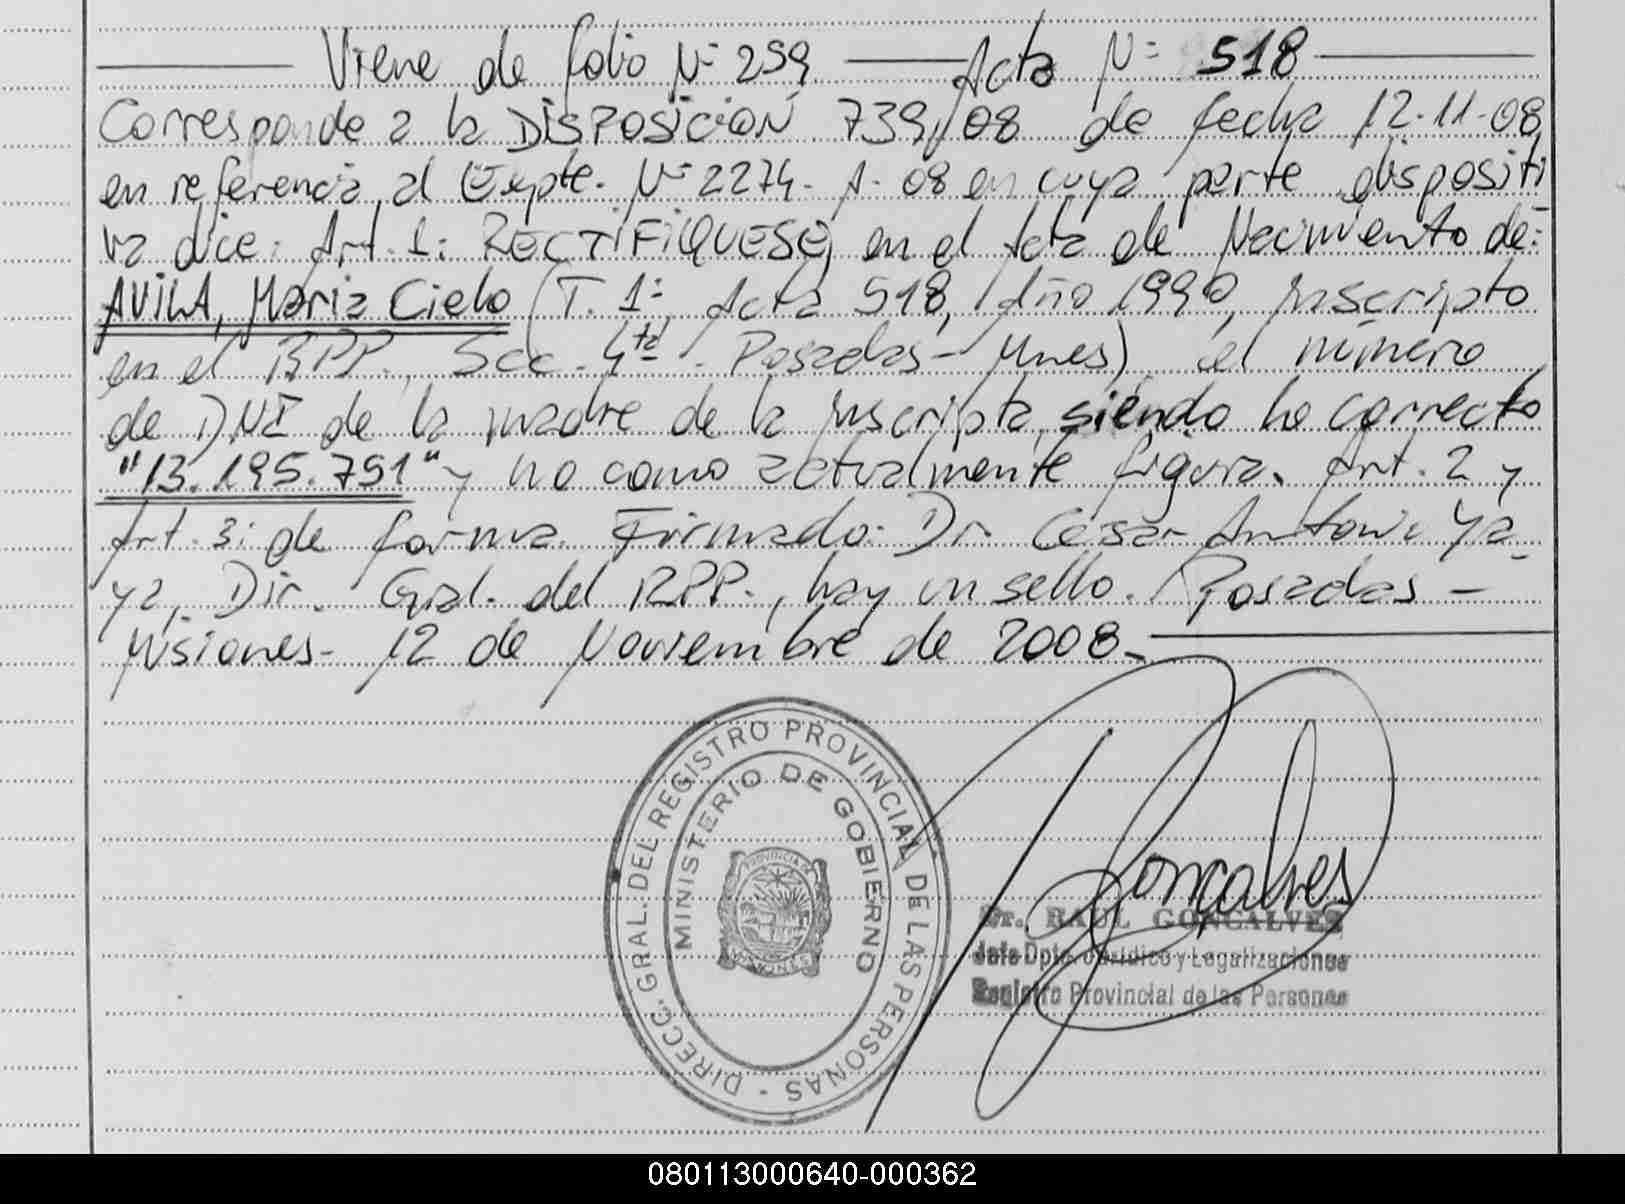 Viene de folio Nº 259 Acta Nº 518
Corresponde a la DISPOSICION 739/08 de fecha 12-11-08,
en referencia al Expte. Nº 2274- A- 08 en cuya parte dispositi
va dice: Art. 1: RECTIFIQUESE, en el Acta de Nacimiento de:
AVILA, Maria Cielo (T. 1º, Acta 518, Año 1990, inscripto
en el RPP., Secc. 4ta - Posadas - Mnes) el número
de DNI de la madre de la inscripta, siendo lo correcto
"13.195.751" y no como actualmente figura. Art. 2 y
Art. 3: de forma. Firmado: Dr. César Antonio Ya-
ya, Dir. Gral. del RPP., hay un sello. Posadas -
Misiones- 12 de Noviembre de 2008.-
DIRECC. GRAL. DEL REGISTRO PROVINCIAL DE LAS PERSONAS -
MINISTERIO DE GOBIERNO
PROVINCIA DE
MISIONES
Goncalves
Dr. RAUL GONCALVES
Jefe Dpto. Jurídico y Legalizaciones
Registro Provincial de las Personas
080113000640-000362